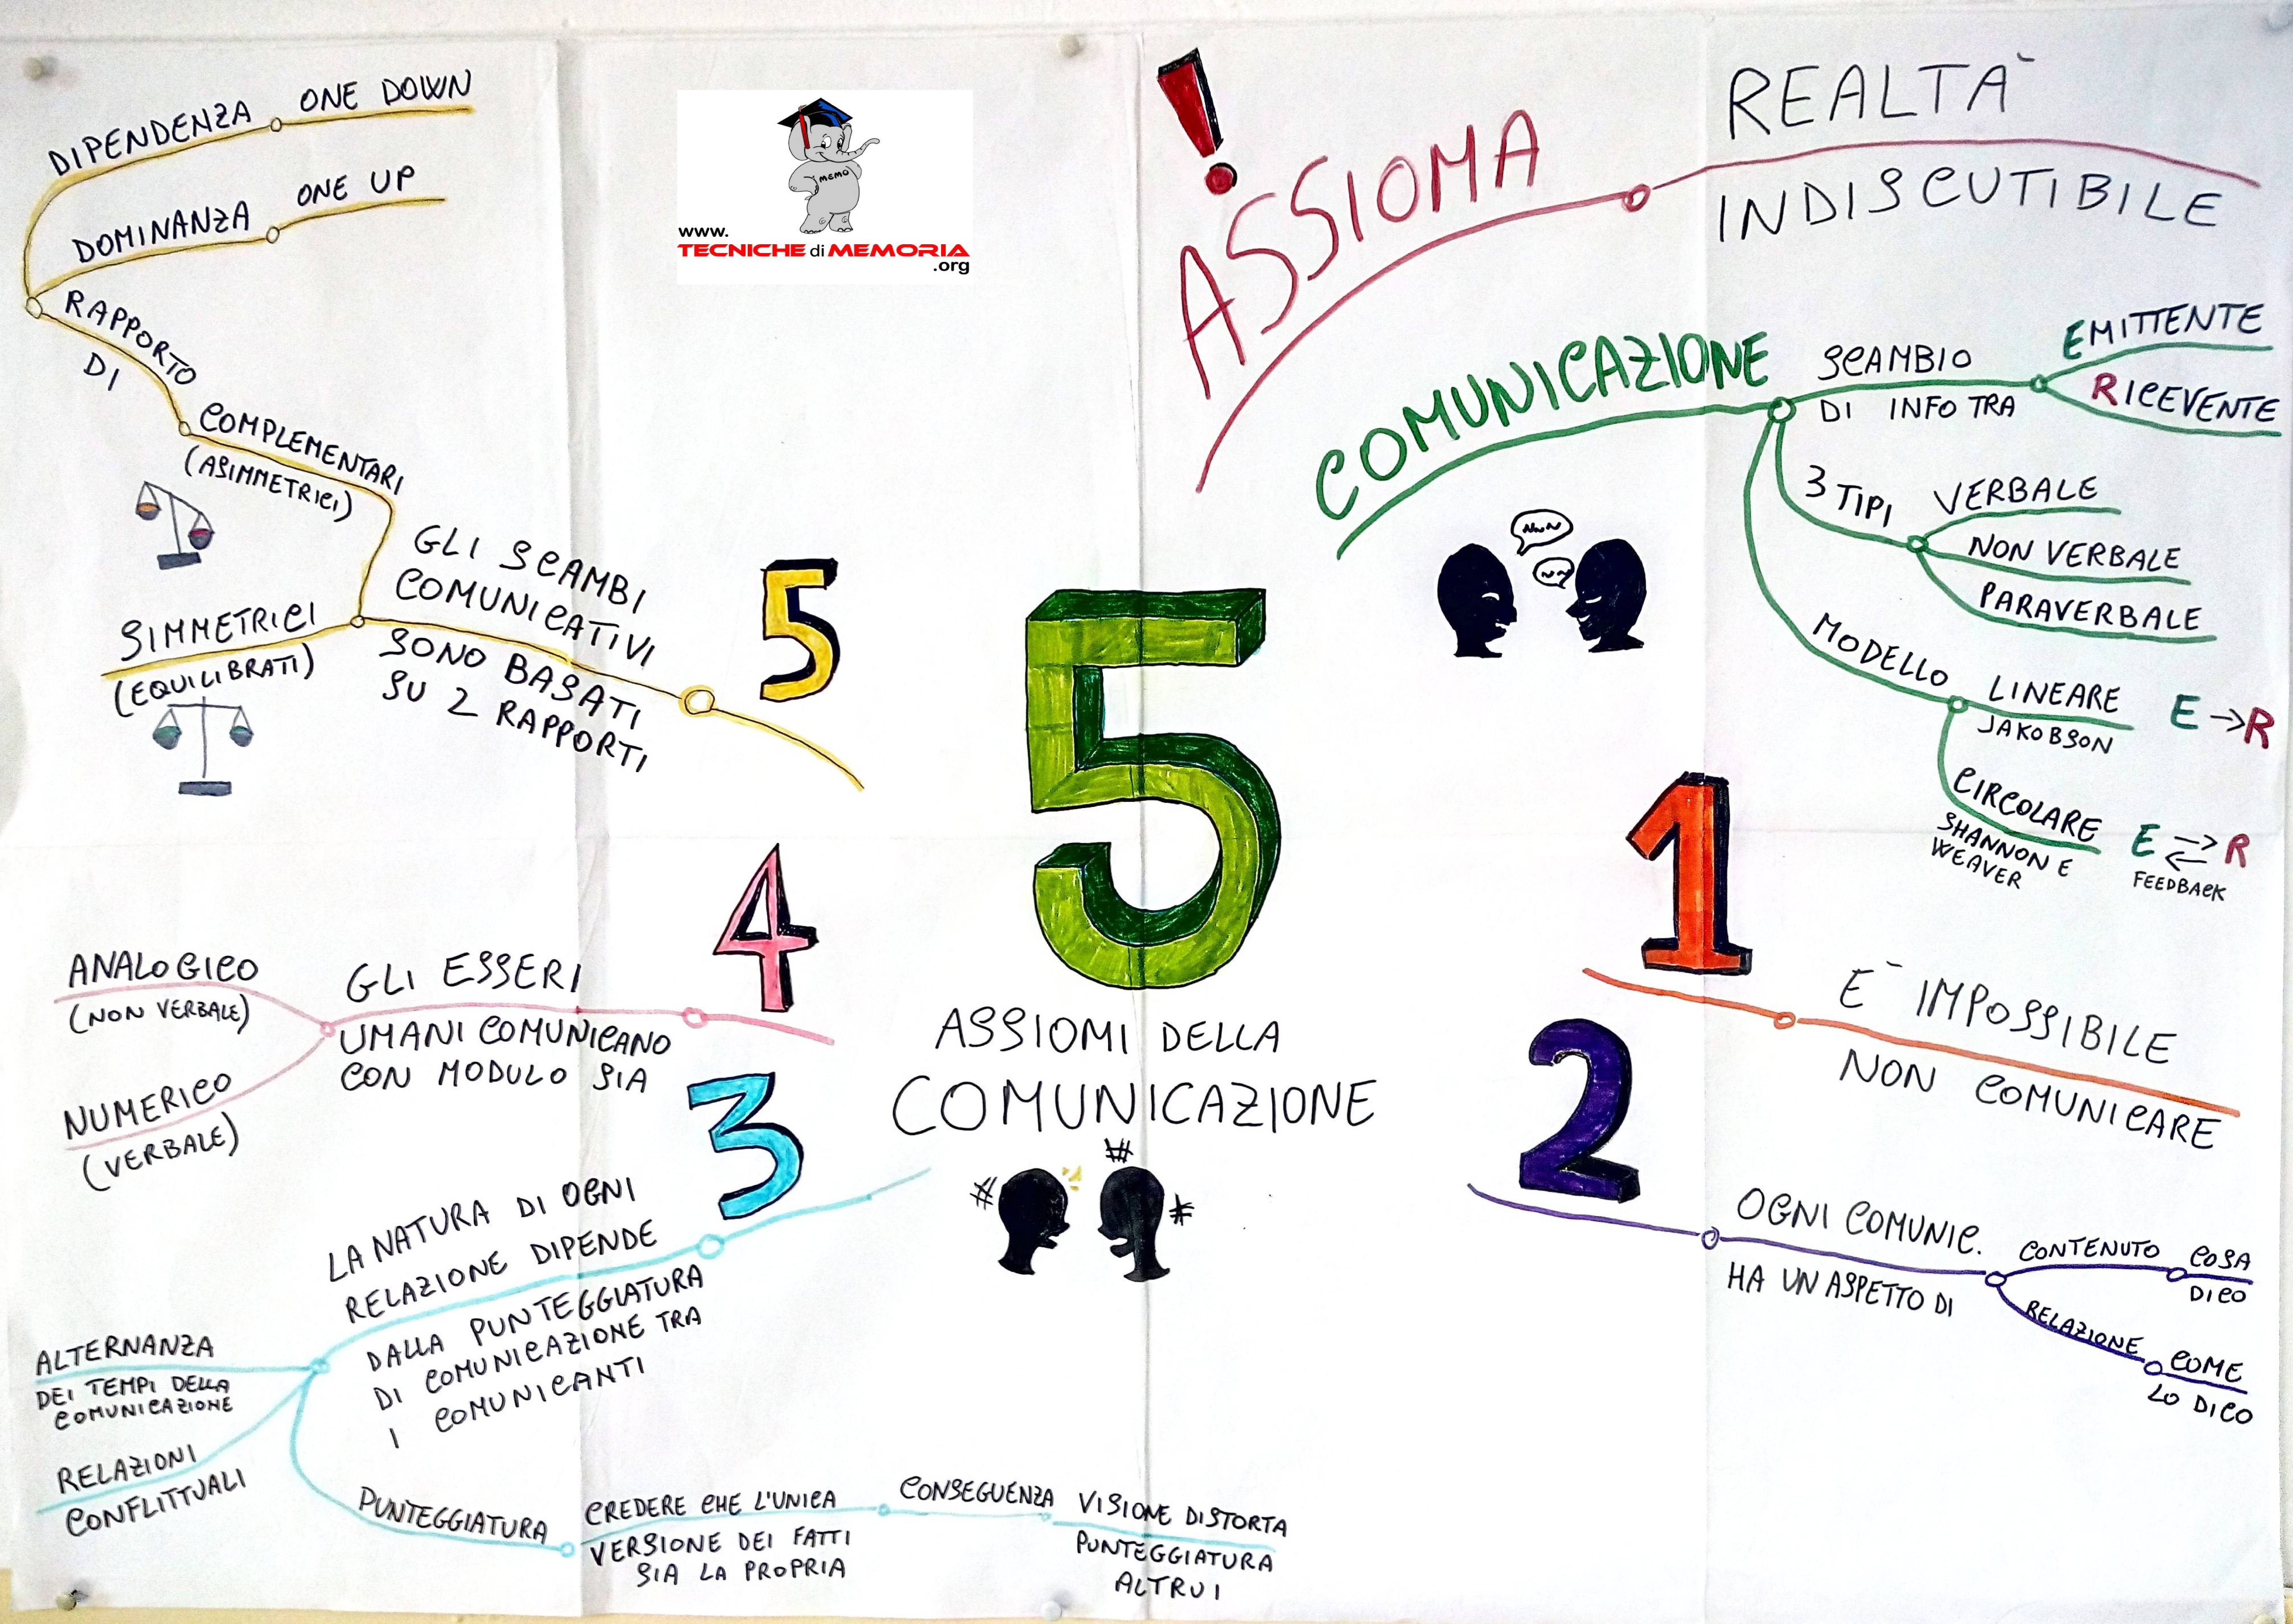 !
ASSIOMA
REALTÀ
INDISCUTIBILE
COMUNICAZIONE
SCAMBIO
DI INFO TRA
EMITTENTE
RICEVENTE
3 TIPI
VERBALE
NON VERBALE
PARAVERBALE
MODELLO
LINEARE
JAKOBSON
E → R
CIRCOLARE
SHANNON E
WEAVER
E ⇄ R
FEEDBACK
5
ASSIOMI DELLA
COMUNICAZIONE
1
È IMPOSSIBILE
NON COMUNICARE
2
OGNI COMUNIC.
HA UN ASPETTO DI
CONTENUTO
COSA
DICO
RELAZIONE
COME
LO DICO
3
LA NATURA DI OGNI
RELAZIONE DIPENDE
DALLA PUNTEGGIATURA
DI COMUNICAZIONE TRA
I COMUNICANTI
ALTERNANZA
DEI TEMPI DELLA
COMUNICAZIONE
RELAZIONI
CONFLITTUALI
PUNTEGGIATURA
CREDERE CHE L'UNICA
VERSIONE DEI FATTI
SIA LA PROPRIA
CONSEGUENZA
VISIONE DISTORTA
PUNTEGGIATURA
ALTRUI
4
GLI ESSERI
UMANI COMUNICANO
CON MODULO SIA
ANALOGICO
(NON VERBALE)
NUMERICO
(VERBALE)
5
GLI SCAMBI
COMUNICATIVI
SONO BASATI
SU 2 RAPPORTI
SIMMETRICI
(EQUILIBRATI)
COMPLEMENTARI
(ASIMMETRICI)
RAPPORTO
DI
DOMINANZA
ONE UP
DIPENDENZA
ONE DOWN
MEMO
www.
TECNICHE di MEMORIA
.org